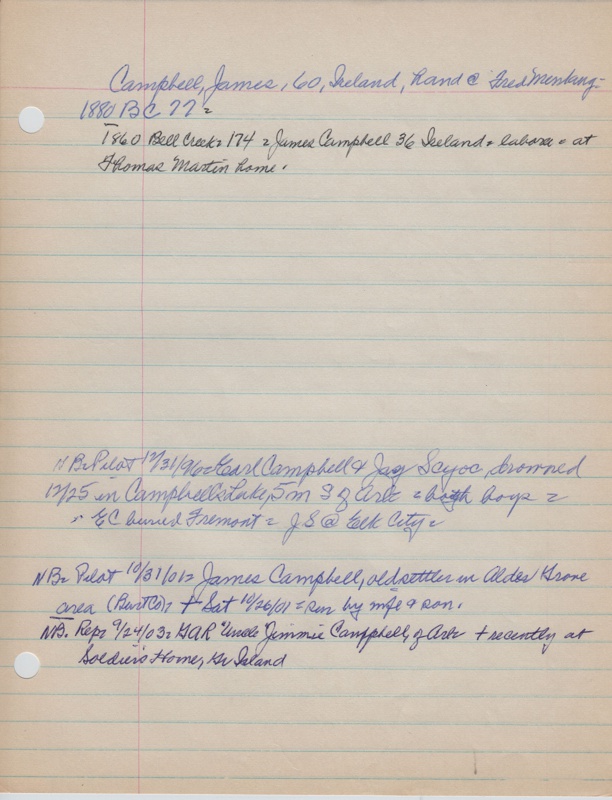 Campbell, James, 60, Ireland, hand @ Fred Menking -
1880 BC 77 =
1860 Bell Creek = 174 = James Campbell 36 Ireland = laborer = at
Thomas Martin home.
NB = Pilot 12/31/96 = Earl Campbell & Jay Scyoc, drowned
12/25 in Campbell's Lake, 5 m S of Arl = both boys =
EC buried Fremont = JS @ Elk City =
NB = Pilot 10/31/01 = James Campbell, old settler in Alder Grove
area (Burt Co), + Sat 10/26/01 = sur by wife & son.
NB. Rep = 9/24/03 = GAR "Uncle" Jimmie Campbell, of Arl + recently at
Soldier's Home, Gr Island